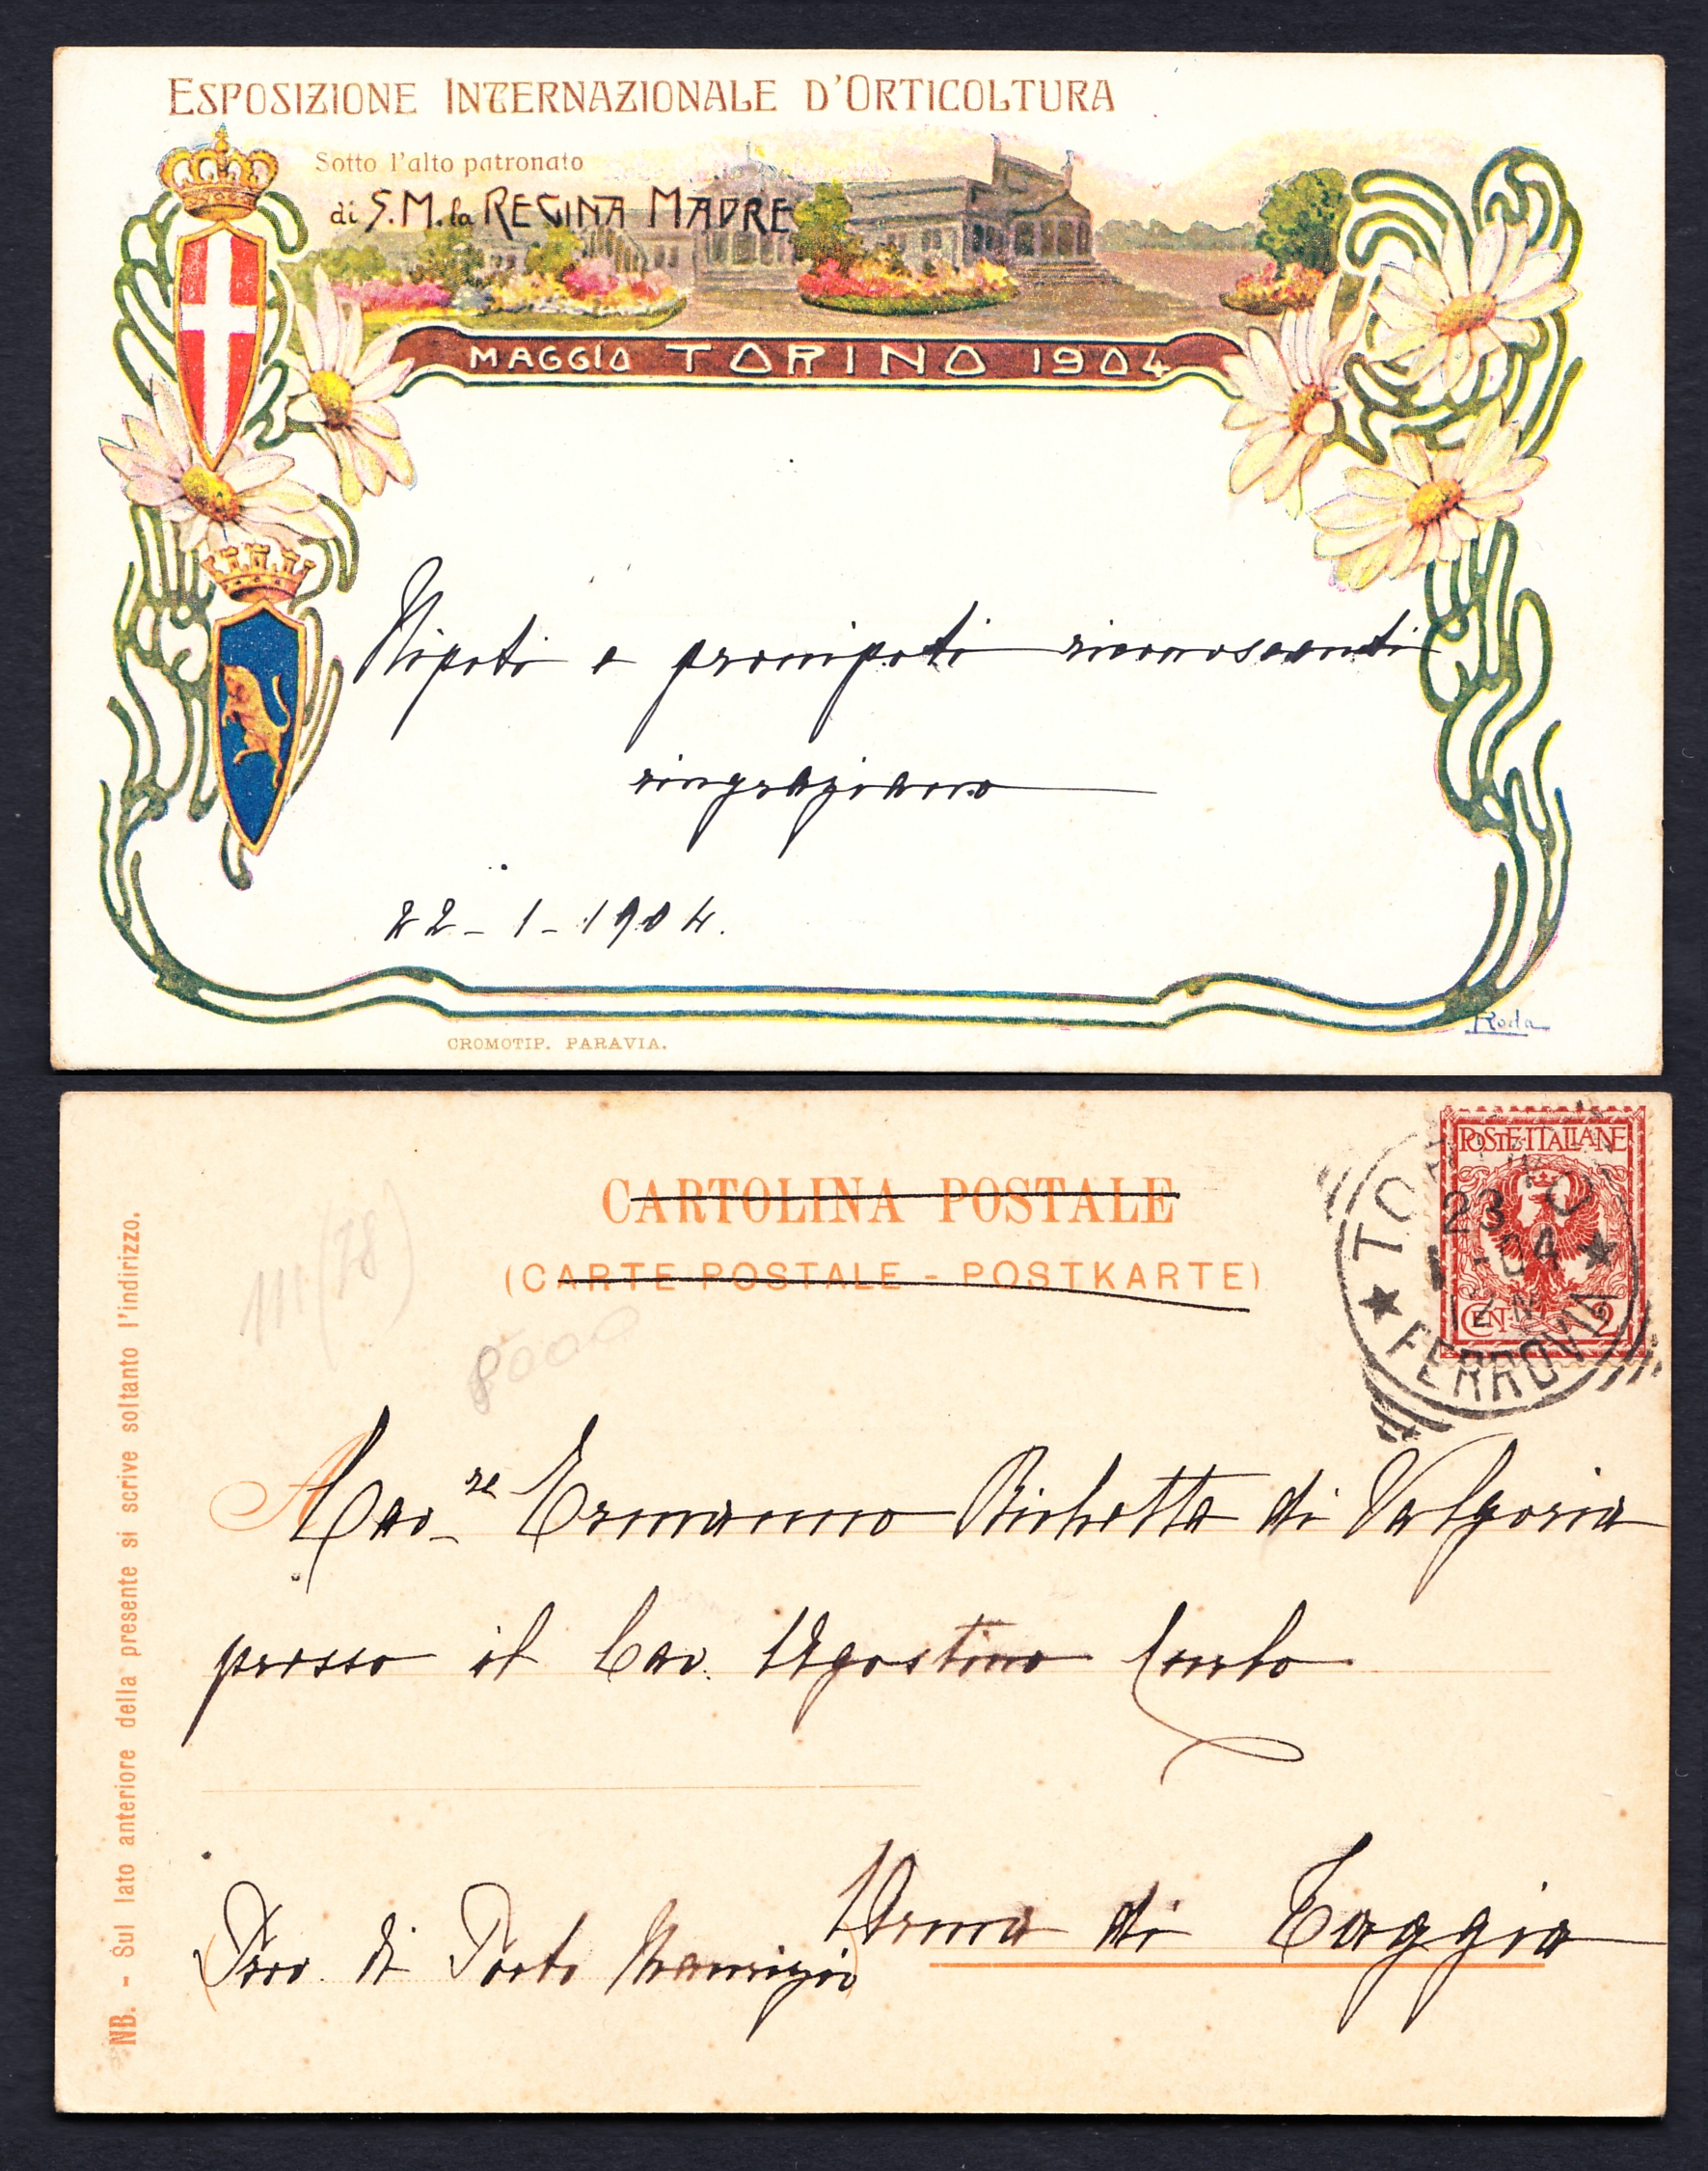 ESPOSIZIONE INTERNAZIONALE D'ORTICOLTURA
Sotto l'alto patronato
di S.M. la REGINA MADRE
MAGGIO TORINO 1904
Nipoti e pronipoti riconoscenti
ringraziano
22-1-1904.
CROMOTIP. PARAVIA.
Roda
CARTOLINA POSTALE
(CARTE POSTALE - POSTKARTE)
POSTE ITALIANE
CENT. 2
TORINO
23
1-04
FERROVIA
111 (78)
8000
A
Cav.re Ermanno Richetta di Valgoria
presso il Cav. Agostino
Arma di Taggia
(Prov. di Porto Maurizio)
NB. - Sul lato anteriore della presente si scrive soltanto l'indirizzo.